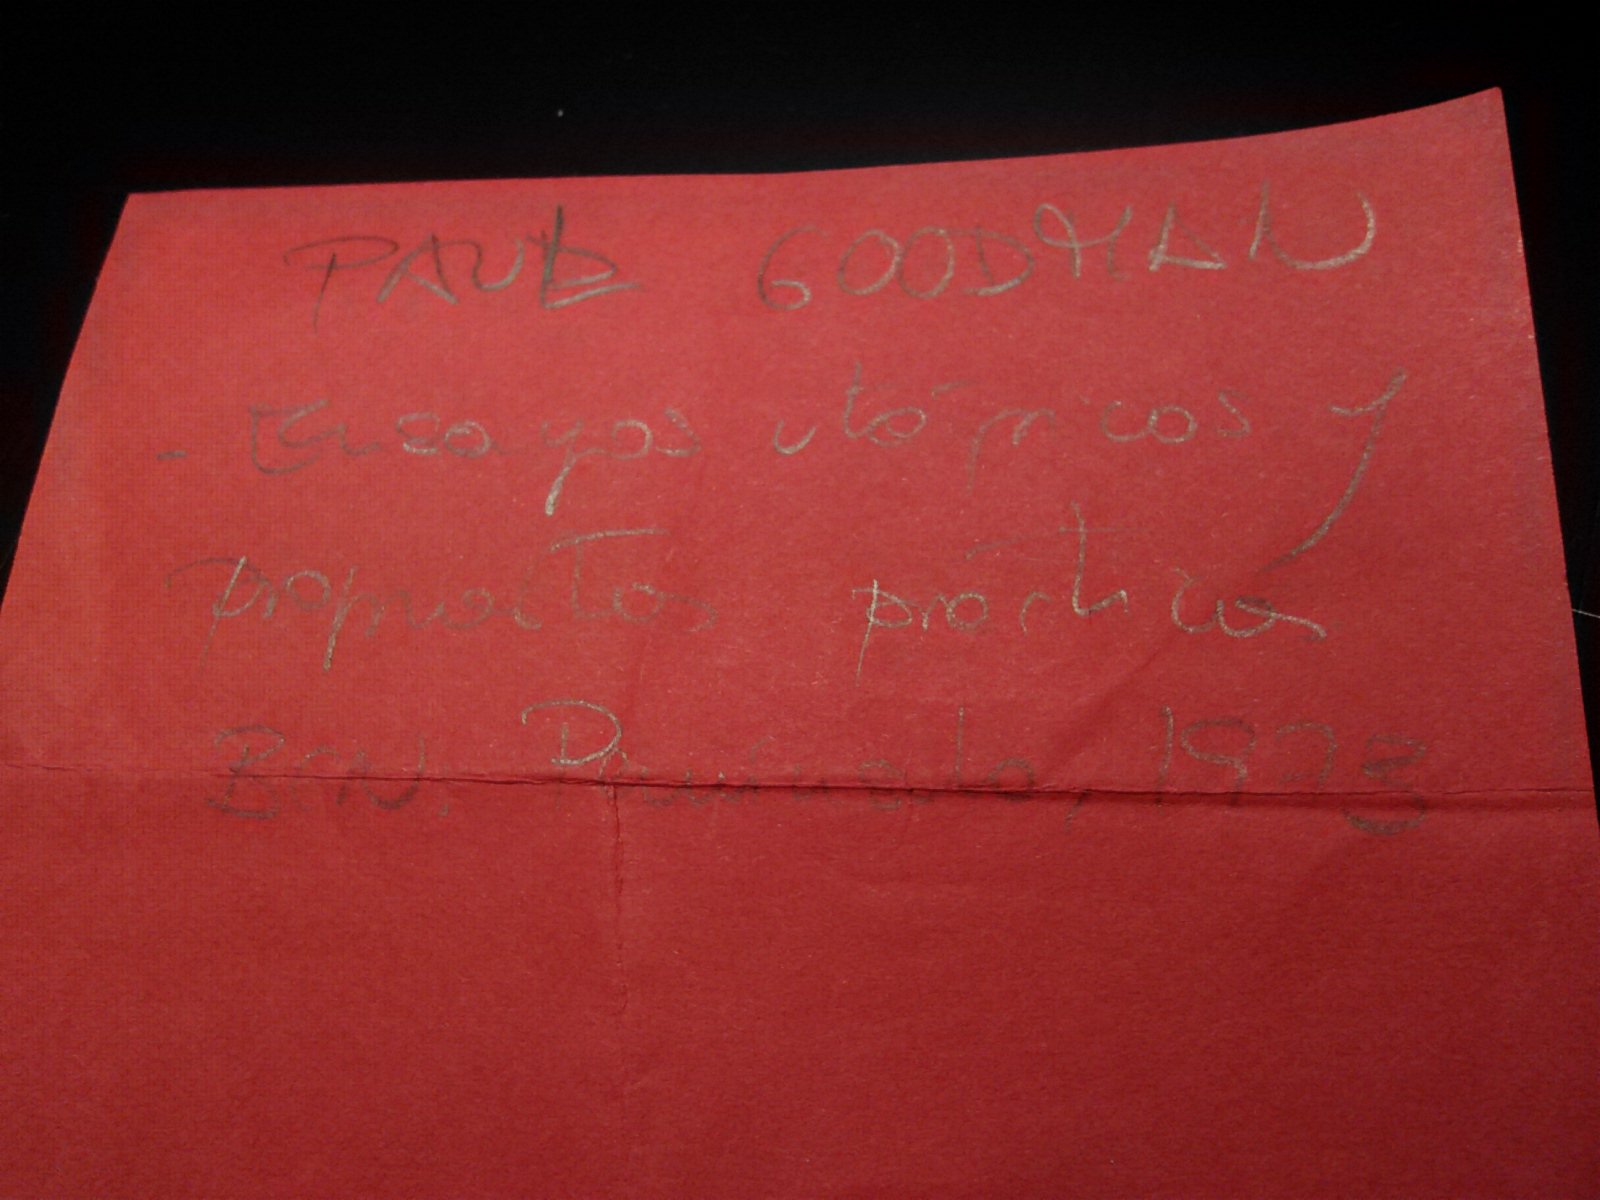 PAUL GOODMAN
- Ensayos utópicos y
propuestas prácticas
BCN. Península, 1973